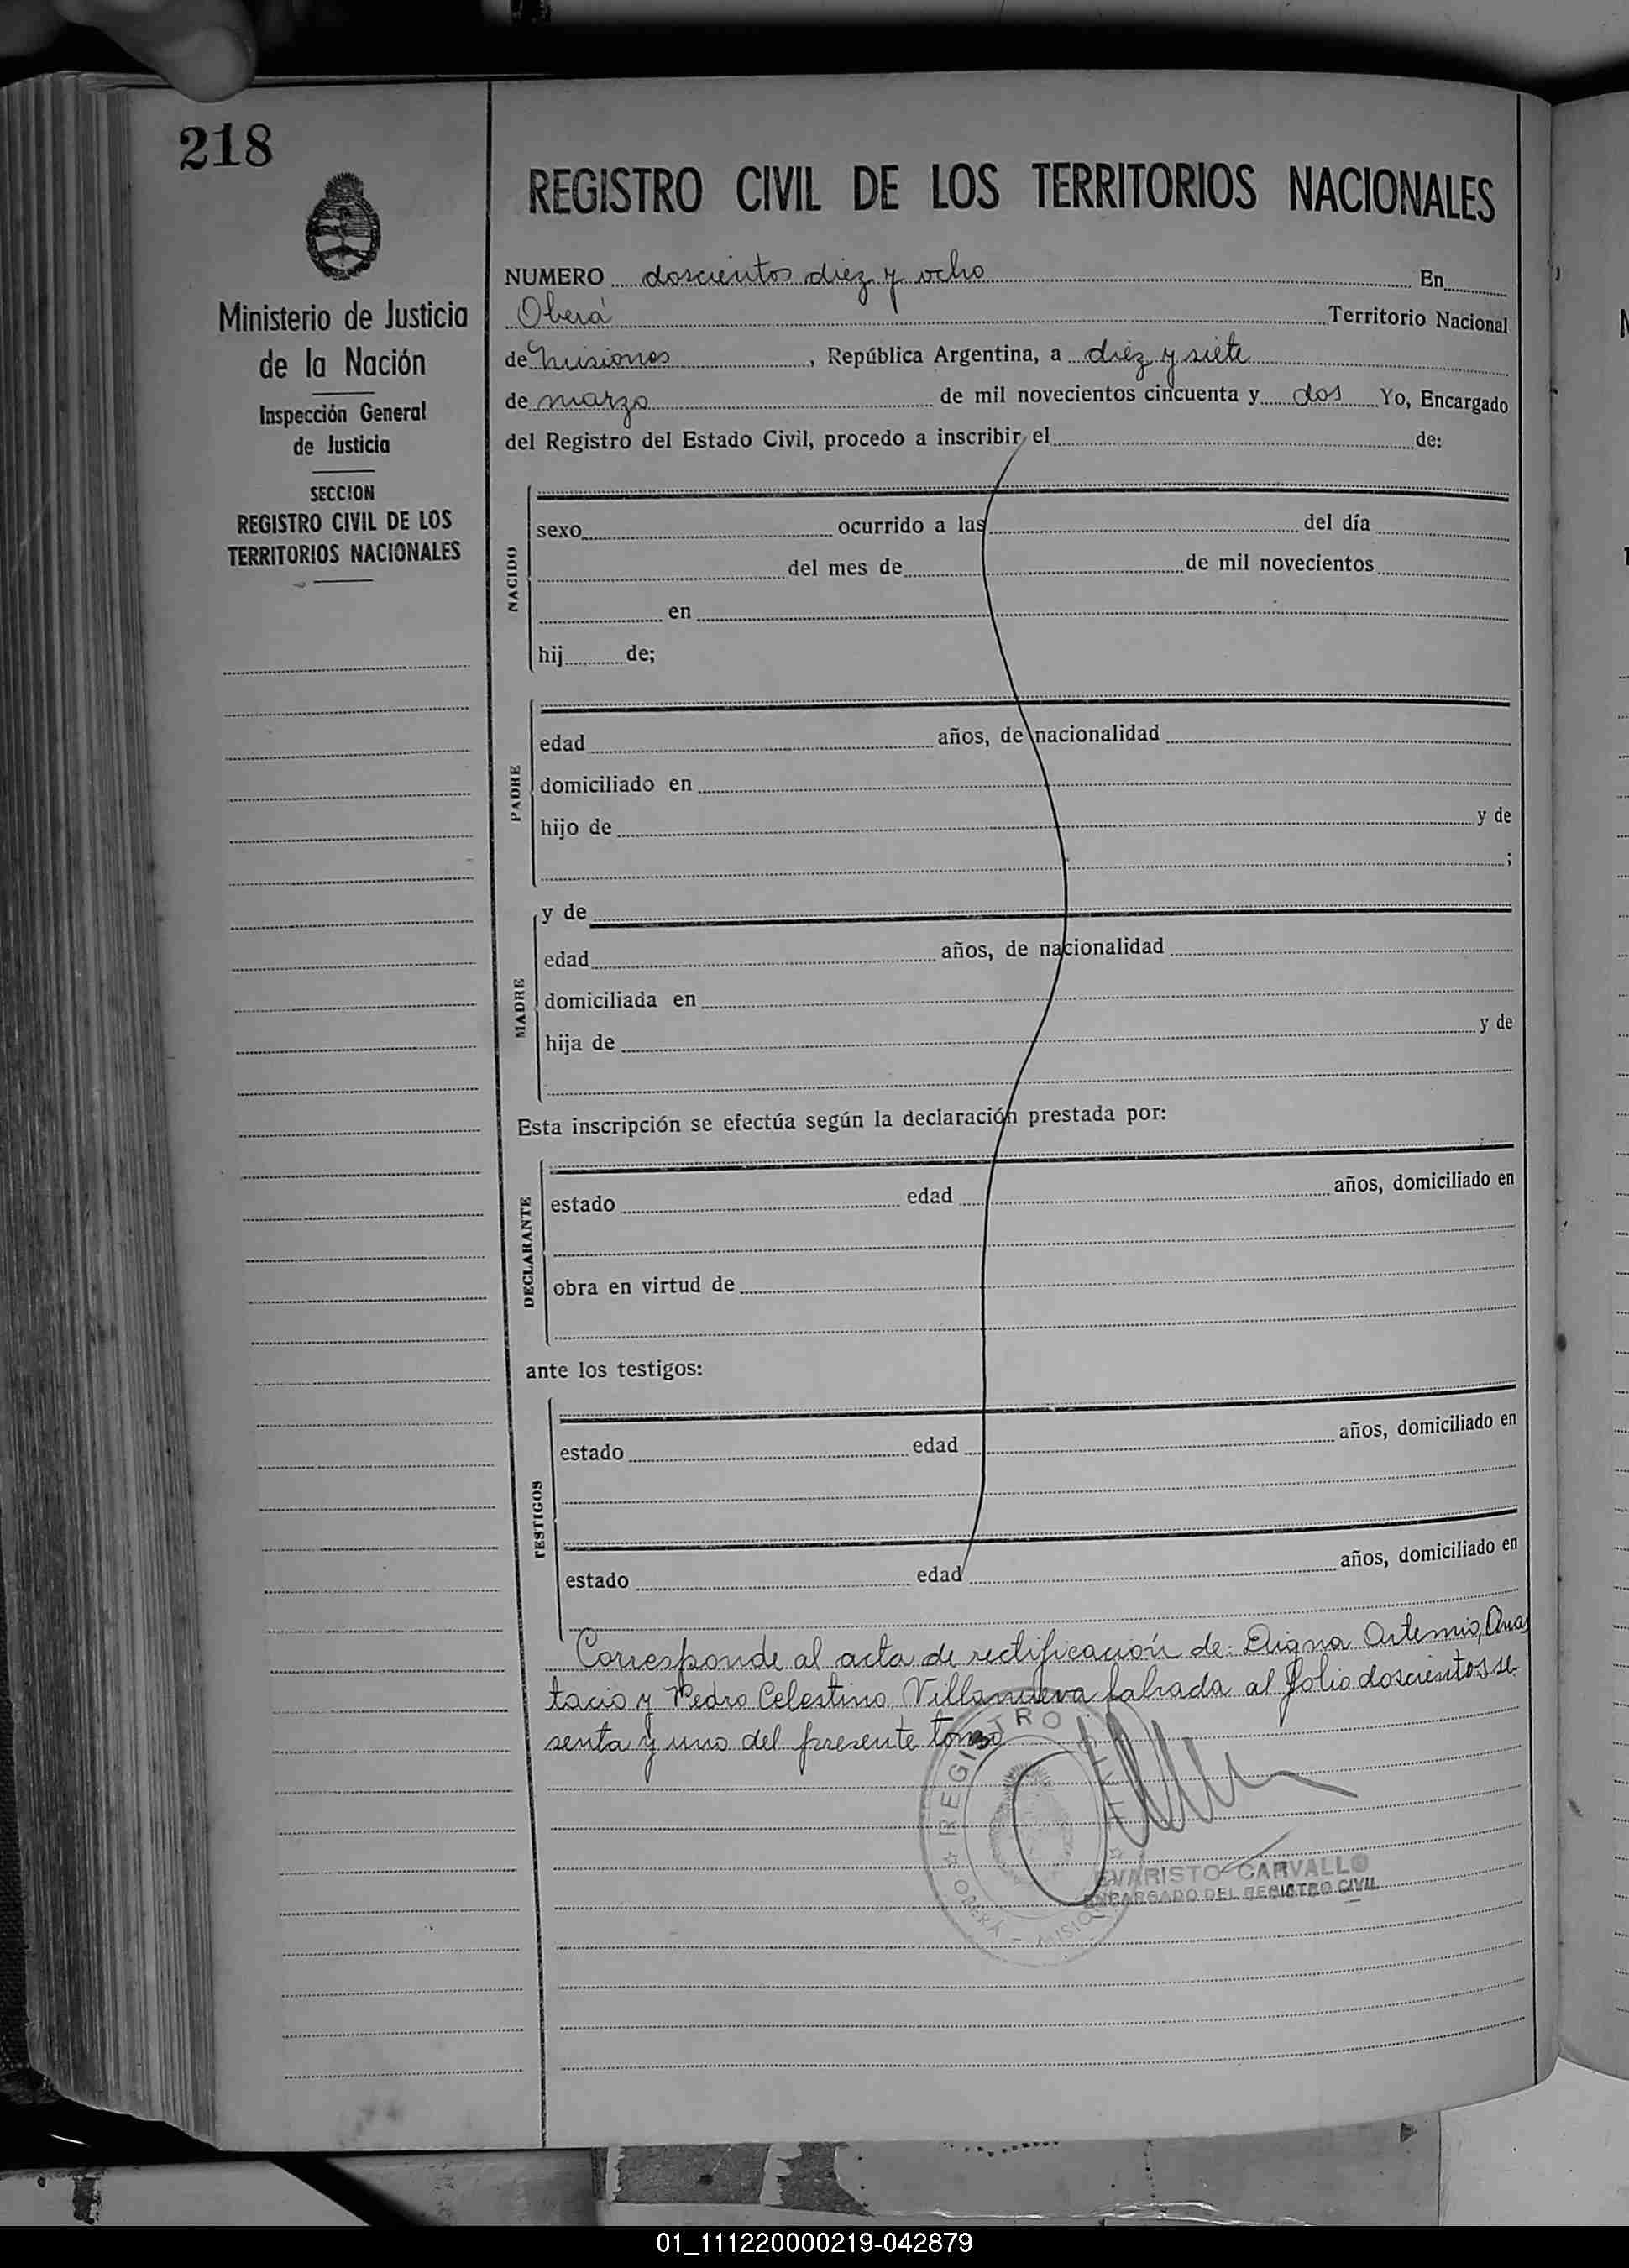 218
Ministerio de Justicia
de la Nación
Inspección General
de Justicia
SECCION
REGISTRO CIVIL DE LOS
TERRITORIOS NACIONALES
REGISTRO CIVIL DE LOS TERRITORIOS NACIONALES
NUMERO doscientos diez y ocho En
Oberá Territorio Nacional
de Misiones, República Argentina, a diez y siete
de marzo de mil novecientos cincuenta y dos Yo, Encargado
del Registro del Estado Civil, procedo a inscribir el de:
NACIDO
sexo ocurrido a las del día
del mes de de mil novecientos
en
hij de;
PADRE
edad años, de nacionalidad
domiciliado en
hijo de y de
;
MADRE
y de
edad años, de nacionalidad
domiciliada en
hija de y de
Esta inscripción se efectúa según la declaración prestada por:
DECLARANTE
estado edad años, domiciliado en
obra en virtud de
ante los testigos:
TESTIGOS
estado edad años, domiciliado en
estado edad años, domiciliado en
Corresponde al acta de rectificación de: Digna Artemio, Anas
tacio y Pedro Celestino Villanueva labrada al folio doscientos se
senta y uno del presente tomo
REGISTRO CIVIL
OBERÁ - MISIONES
EVARISTO CARVALLO
ENCARGADO DEL REGISTRO CIVIL
01_111220000219-042879